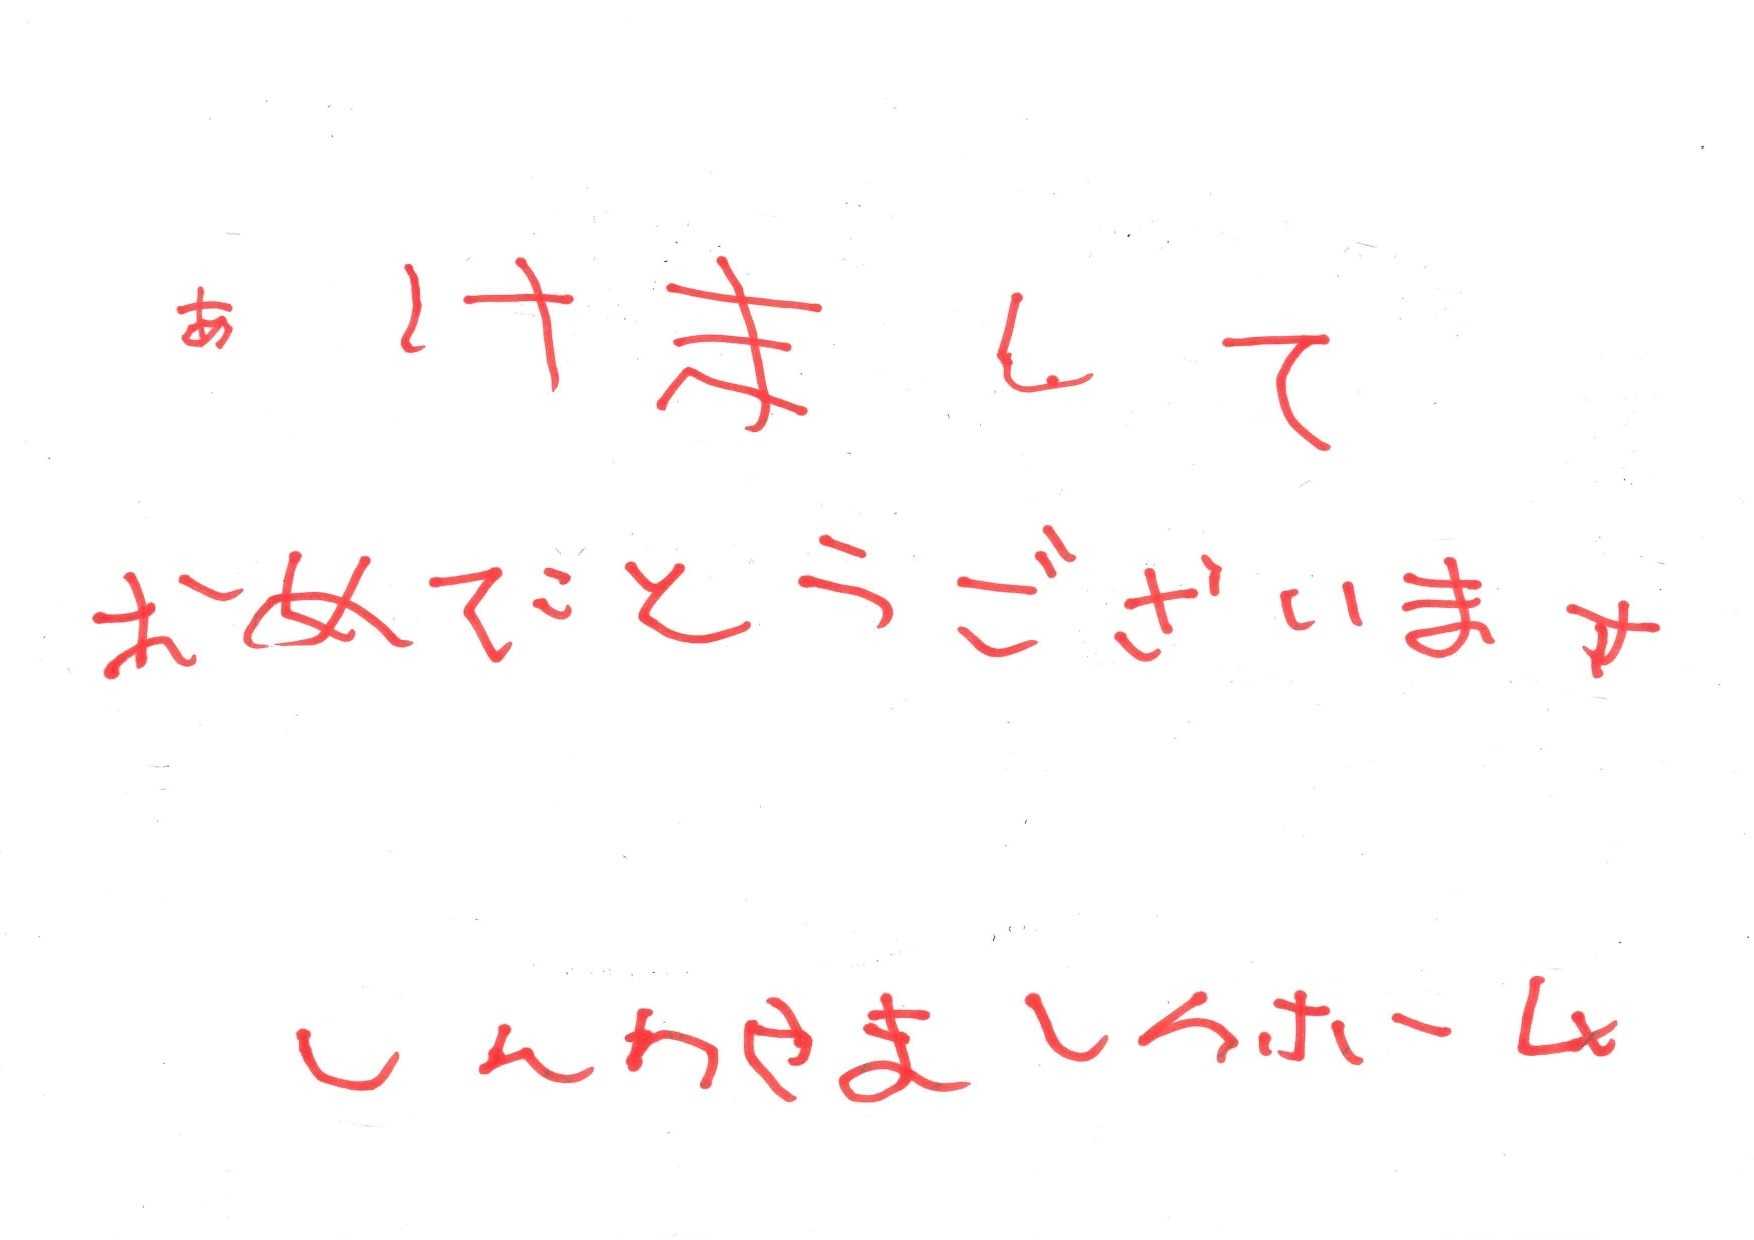 あけまして
おめでとうございます
しんわやましらホーム